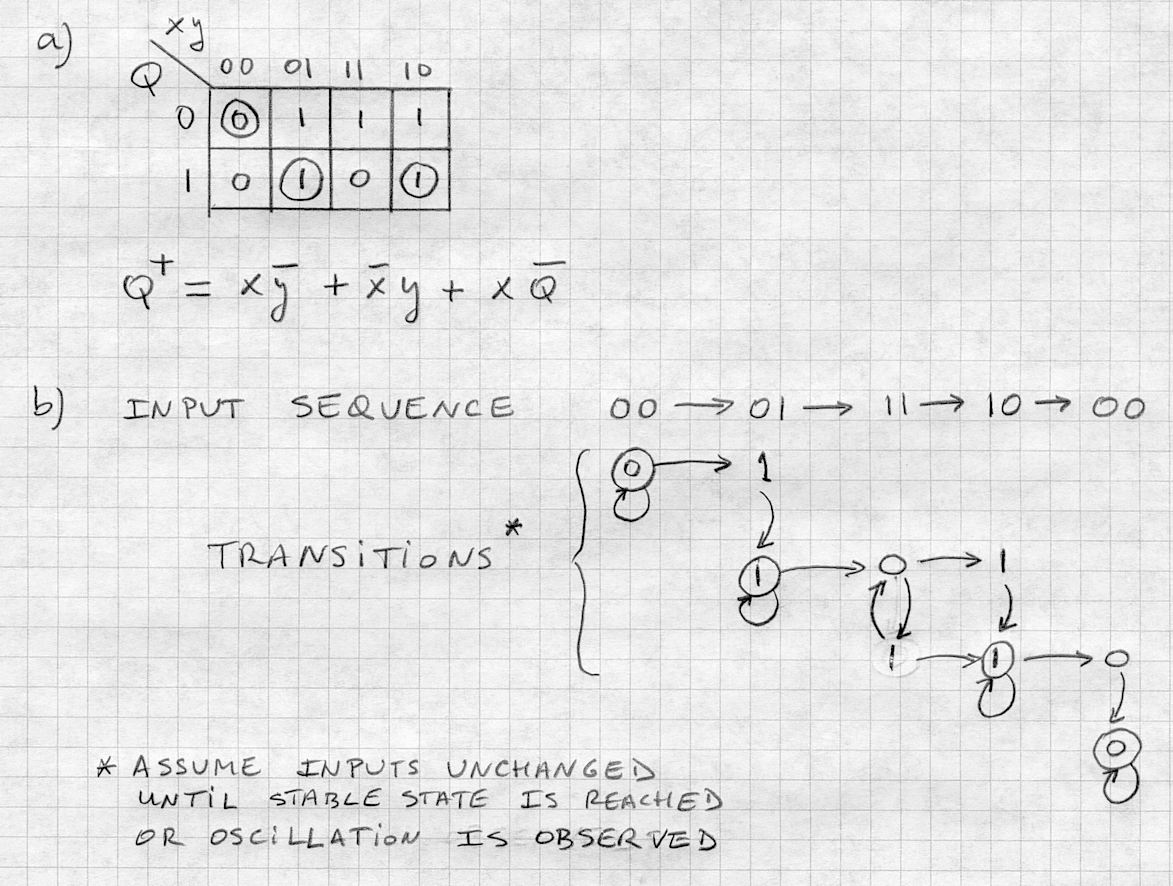 a)
xy
Q 00 01 11 10
0 0 1 1 1
1 0 1 0 1
Q⁺ = xȳ + x̄y + xQ̄
b) INPUT SEQUENCE 00 → 01 → 11 → 10 → 00
0 → 1
TRANSITIONS*
1 → 0 → 1
1 → 1 → 0
0
* ASSUME INPUTS UNCHANGED
UNTIL STABLE STATE IS REACHED
OR OSCILLATION IS OBSERVED